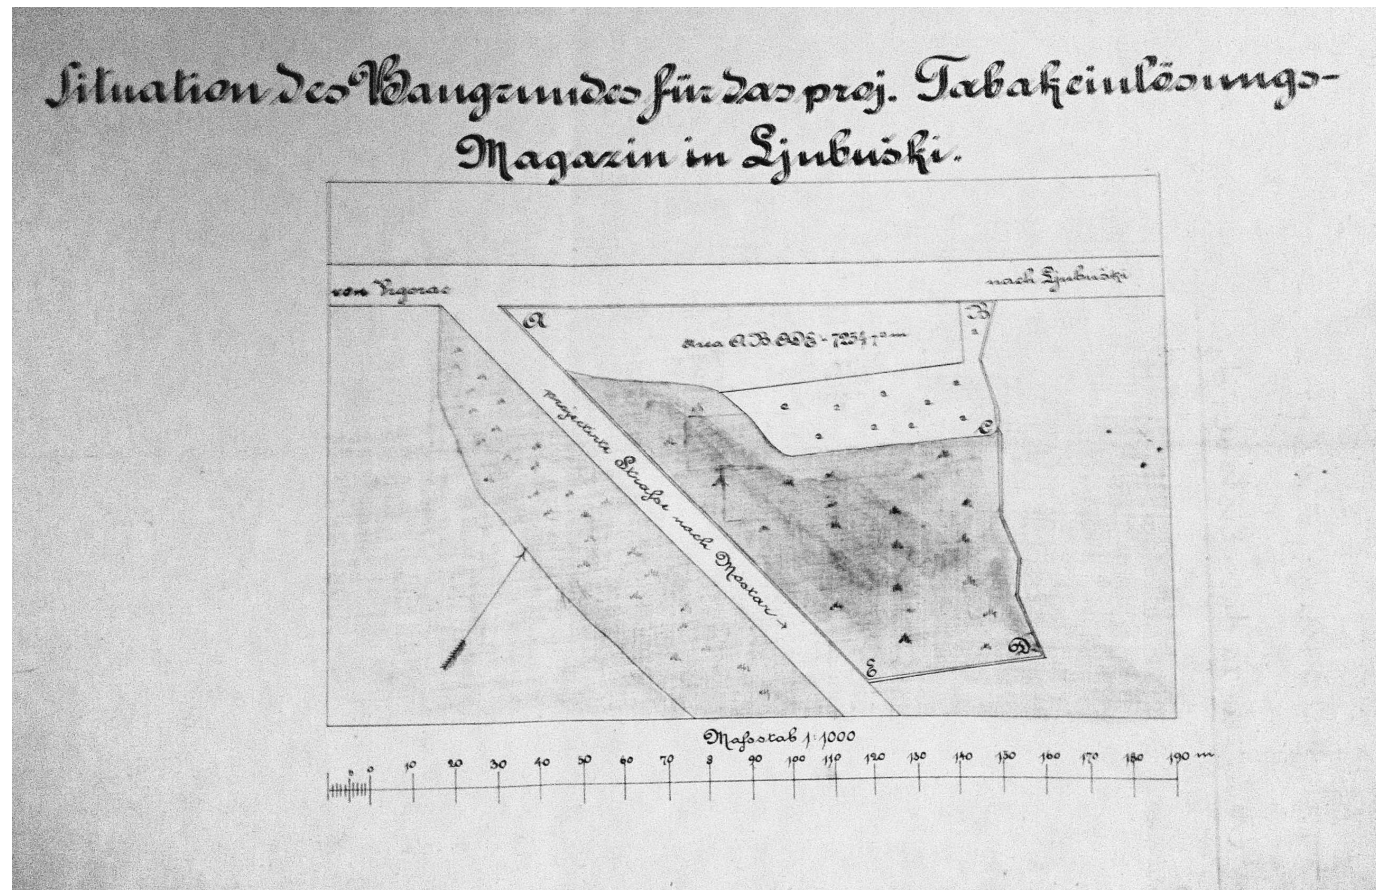 Situation des Baugrundes für das proj. Tabakeinlösungs-
Magazin in Ljubuški.
von Vrgorac
nach Ljubuški
A
B
Area A B C D E
projectirte Strasse nach Mostar
C
D
E
Massstab 1:1000
5 0 10 20 30 40 50 60 70 8 90 100 110 120 130 140 150 160 170 180 190 m